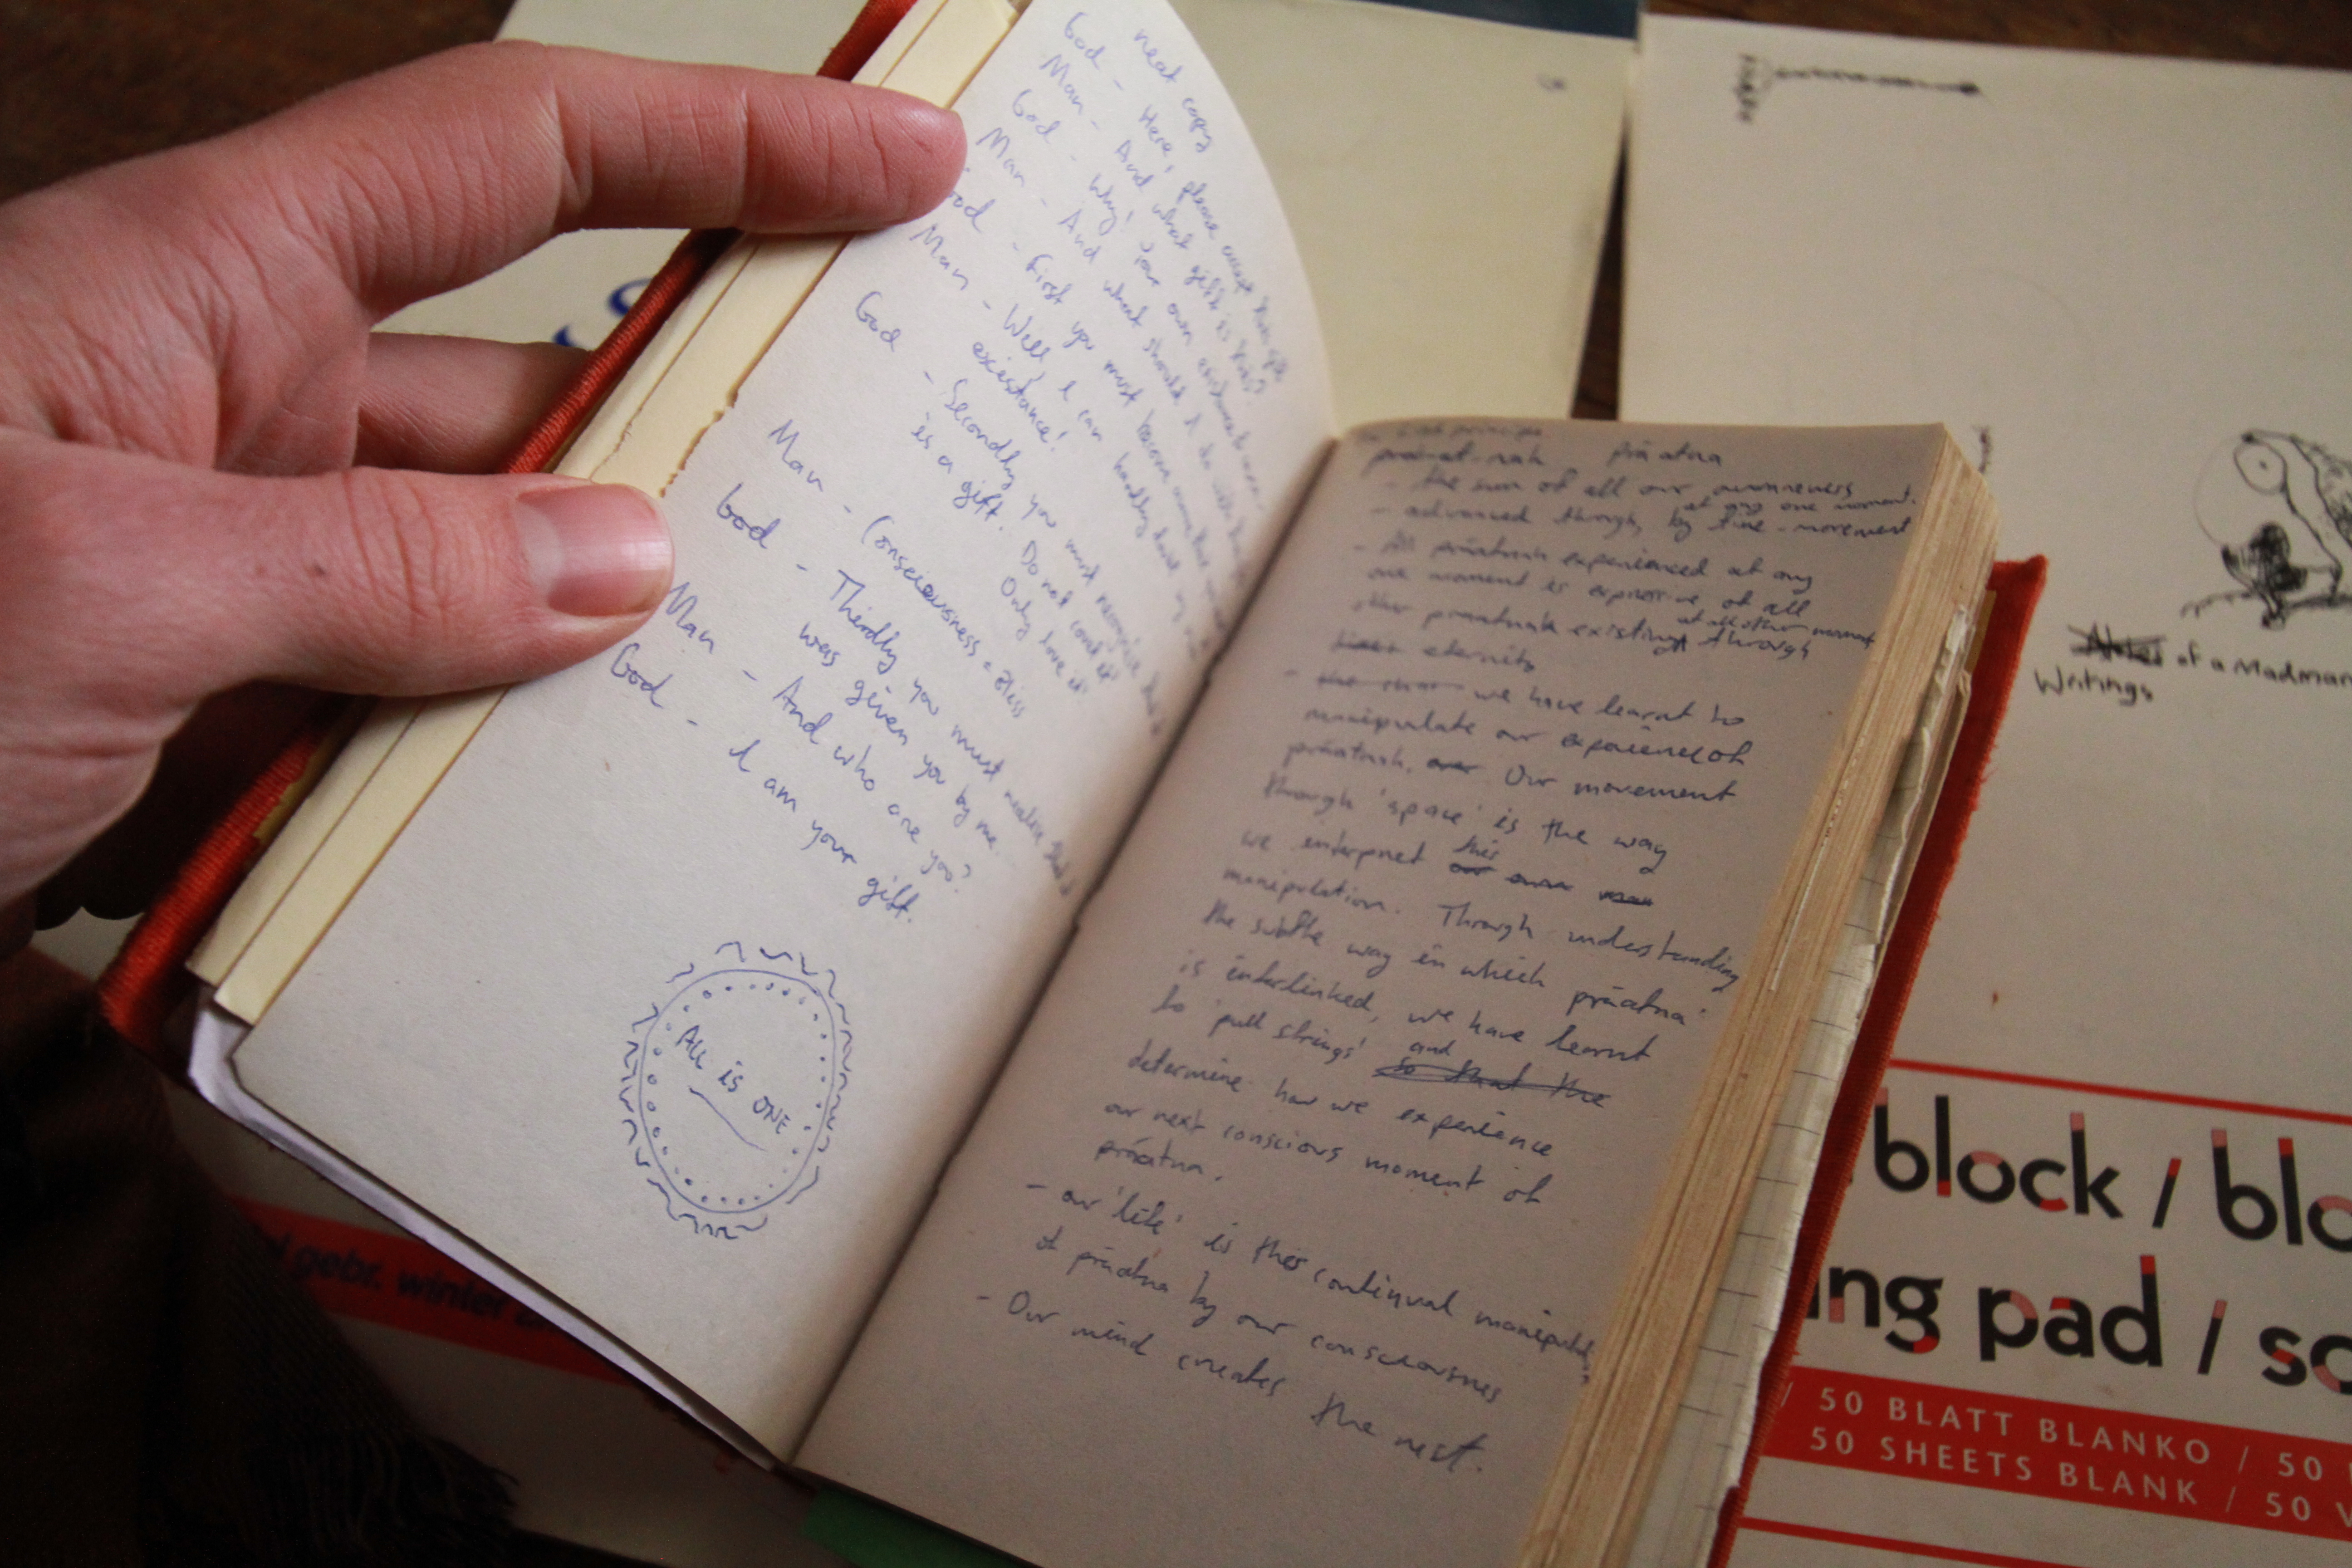 neat copy
God - Here, please accept this gift
Man - And what gift is this?
God - Why! Your own existence
Man - And what should I do with
God - First you must
Man - Well I can hardly
existance!
God - Secondly you must recognise
is a gift. Do not
Only love it
Man - Consciousness = Bliss
God - Thirdly you must realise that it
was given you by me.
Man - And who are you?
God - I am your gift.
All is ONE
präatna
- the sum of all our awareness
at any one moment.
- advanced through, by time-movement
- All präatnah experienced at any
one moment is expressive of all
at all other moments
präatnah existing through
eternity
- we have learnt to
manipulate our experience of
präatnah. Our movement
through 'space' is the way
we interpret this
manipulation. Through understanding
the subtle way in which präatna
is interlinked, we have learnt
to 'pull strings' and so that the
determine how we experience
our next conscious moment of
präatna.
- our 'life' is this continual
of präatna by our consciousness
- Our mind creates the rest.
Notes of a Madman
Writings
block / blo
ing pad / sc
/ 50 BLATT BLANKO / 50
50 SHEETS BLANK / 50 V
gebr. winter